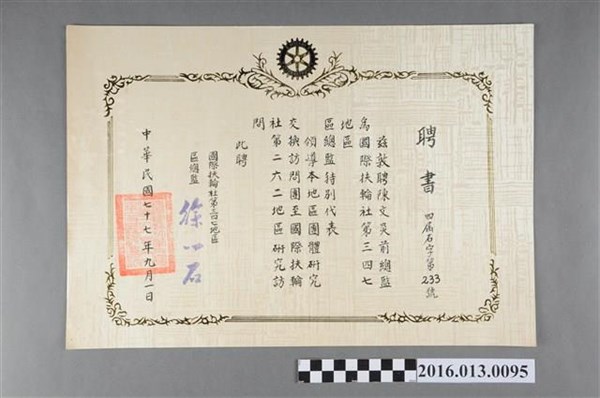 聘書
四屆石字第233號
茲敦聘陳文炎前總監
為國際扶輪社第三四七
地區
區總監特別代表
領導本地區團體研究
交換訪問團至國際扶輪
社第二六二地區研究訪
問
此聘
國際扶輪社第三四七地區
區總監
徐小石
中華民國七十七年九月一日
2016.013.0095